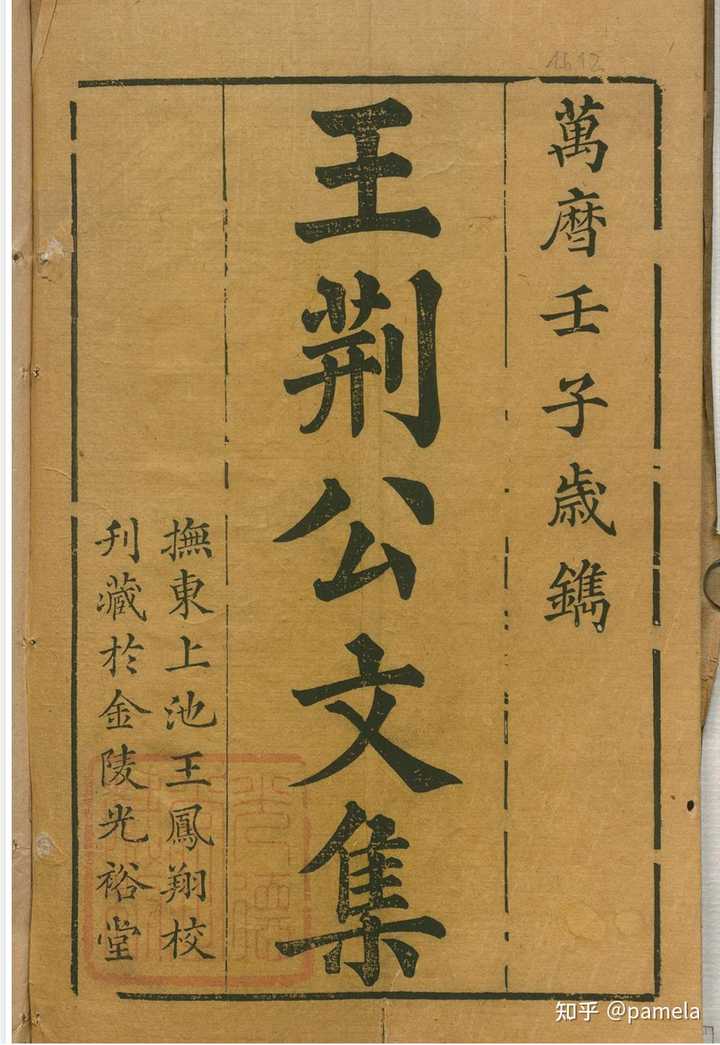 萬曆壬子歲鐫
王荊公文集
撫東上池王鳳翔校
刋藏於金陵光裕堂
1612
知乎 @pamela